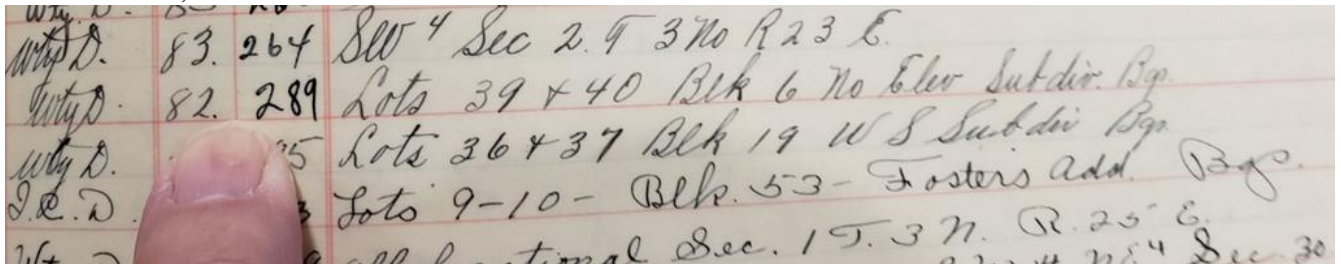 Wty D. 83. 264 SW 4 Sec 2. T 3 No R 23 E.
Wty D. 82. 289 Lots 39 & 40 Blk 6 No Elev Subdiv. Bgs.
Wty D. 5 Lots 36 & 37 Blk 19 W S Subdiv Bgs
Q.C.D. 3 Lots 9-10- Blk. 53- Fosters Add. Bgs.
Sec. 1 T. 3 N. R. 25 E.
NE 4 Sec. 30